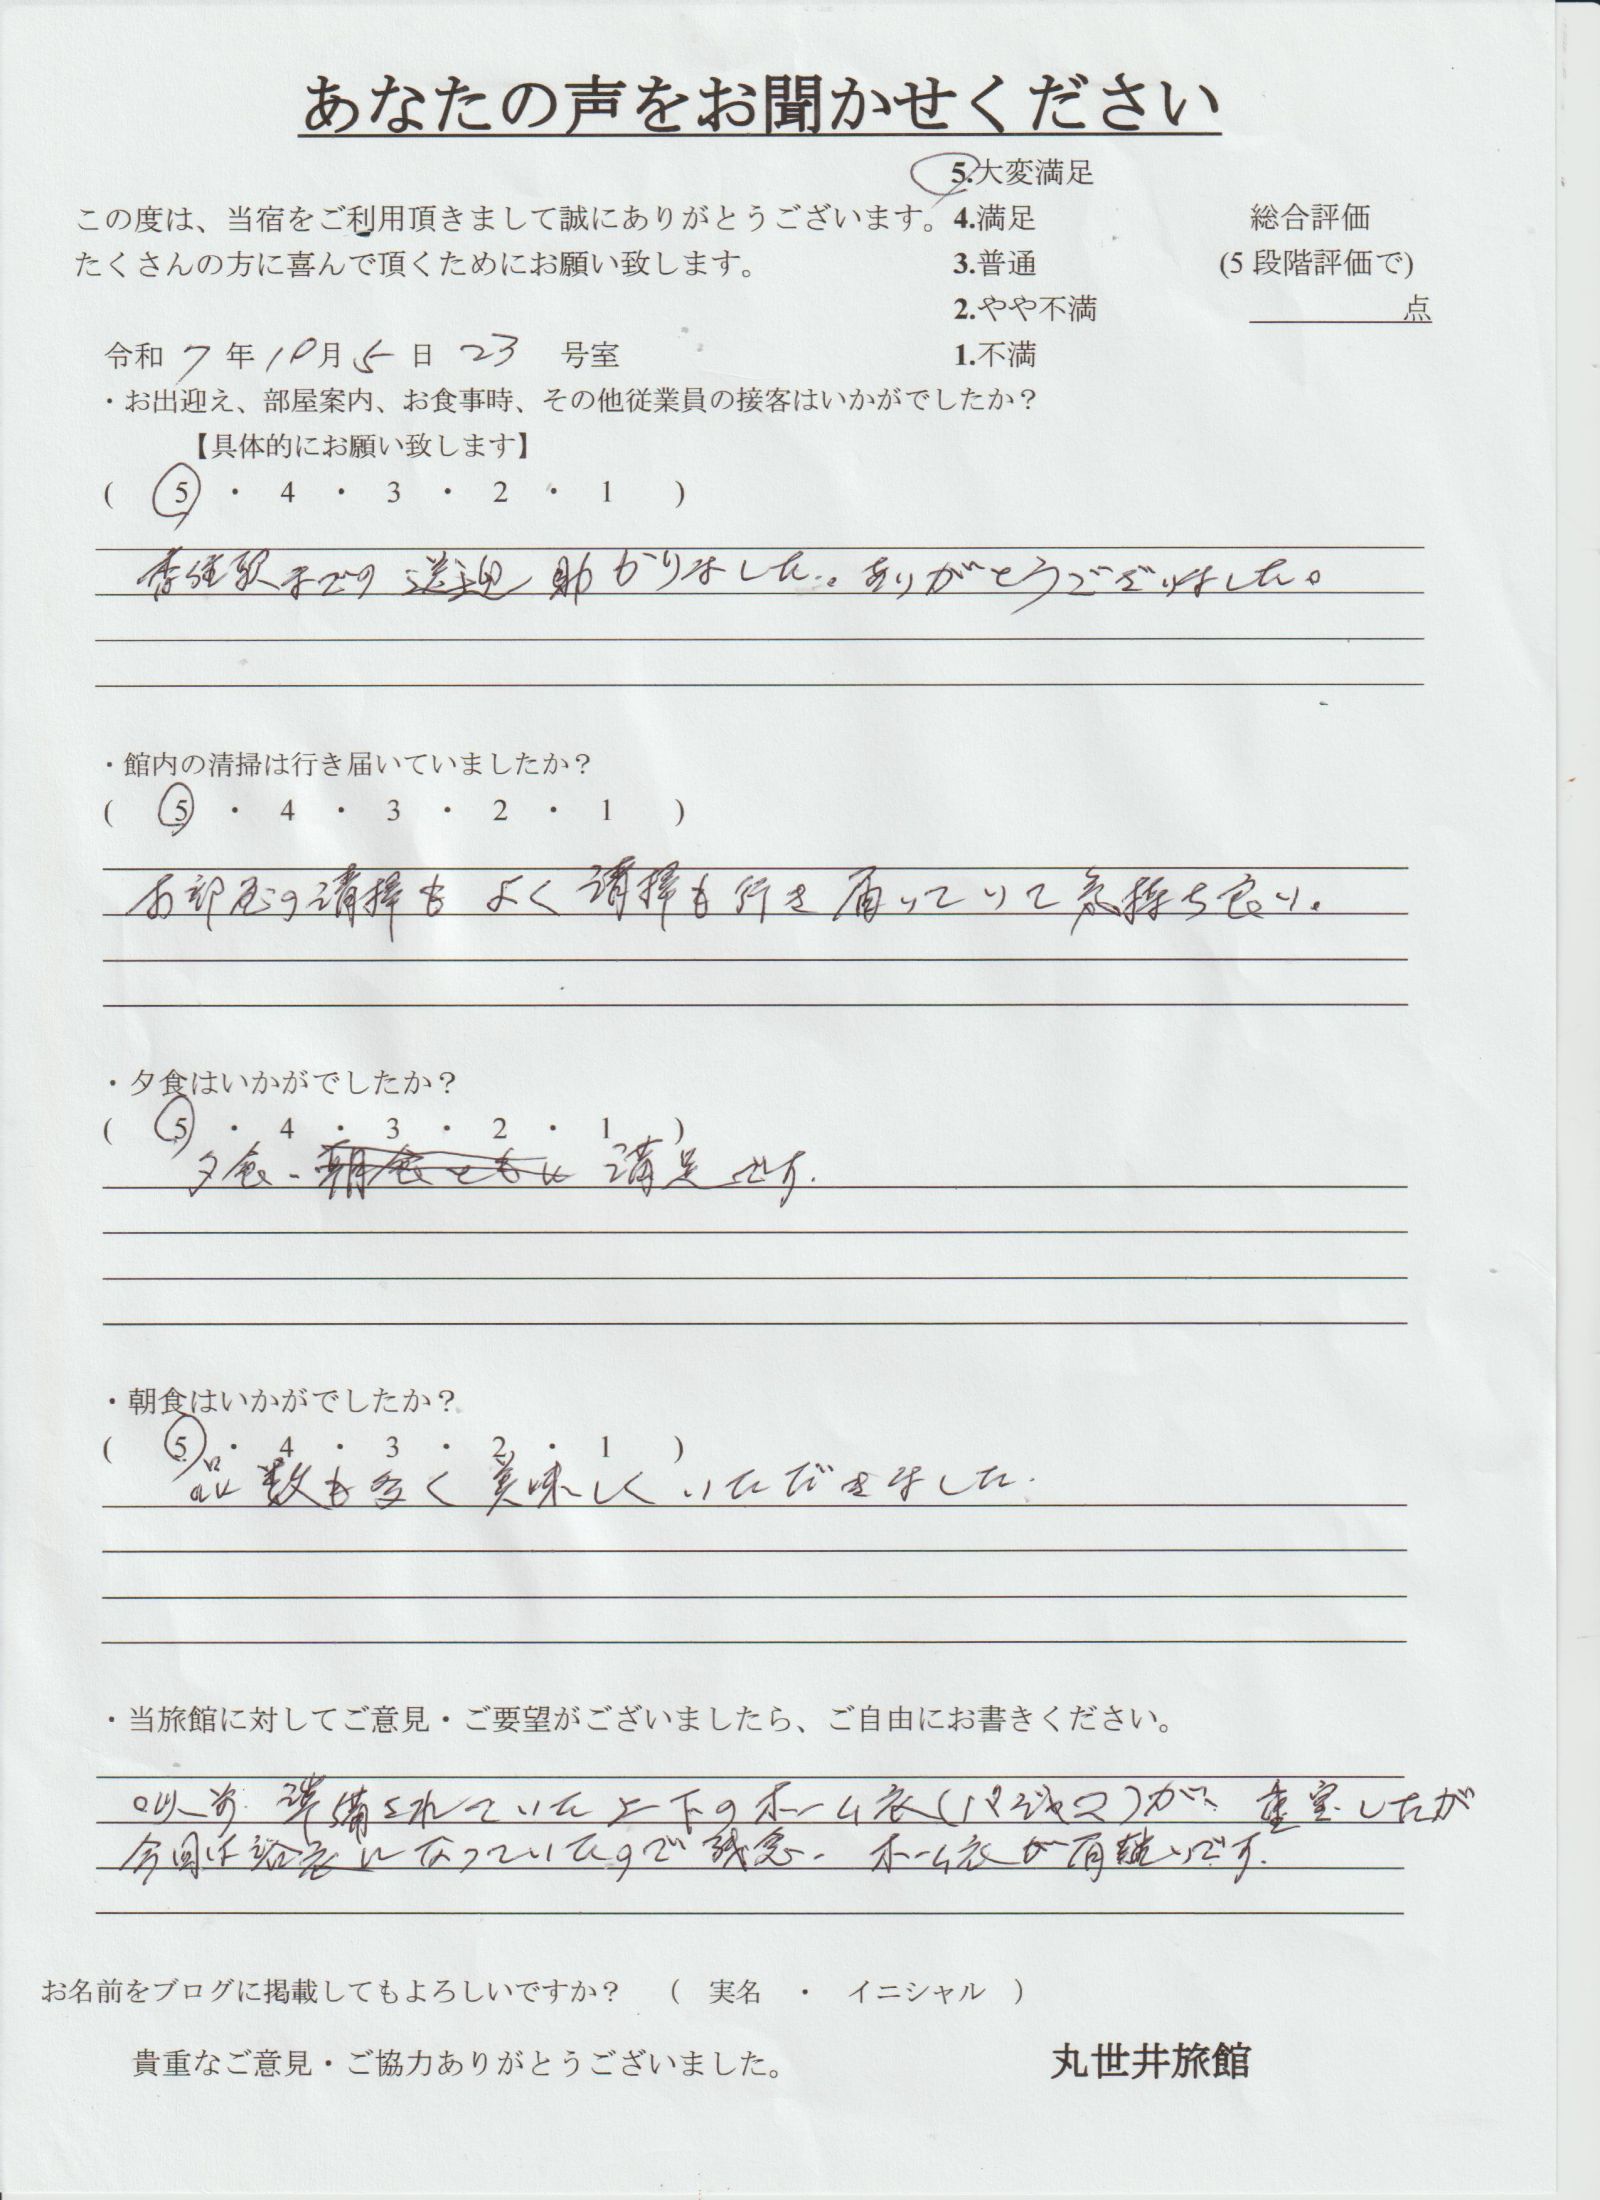 あなたの声をお聞かせください
5.大変満足
この度は、当宿をご利用頂きまして誠にありがとうございます。 4.満足 総合評価
たくさんの方に喜んで頂くためにお願い致します。 3.普通 (5 段階評価で)
2.やや不満 点
令和 7 年 10 月 5 日 23 号室 1.不満
・お出迎え、部屋案内、お食事時、その他従業員の接客はいかがでしたか？
【具体的にお願い致します】
( 5 ・ 4 ・ 3 ・ 2 ・ 1 )
香住駅までの送迎助かりました。ありがとうございました。
・館内の清掃は行き届いていましたか？
( 5 ・ 4 ・ 3 ・ 2 ・ 1 )
お部屋の清掃もよく清掃も行き届いていて気持ち良い。
・夕食はいかがでしたか？
( 5 ・ 4 ・ 3 ・ 2 ・ 1 )
夕食、朝食ともに満足です.
・朝食はいかがでしたか？
( 5 ・ 4 ・ 3 ・ 2 ・ 1 )
品数も多く美味しくいただきました.
・当旅館に対してご意見・ご要望がございましたら、ご自由にお書きください。
以前準備されていた上下のホーム衣(パジャマ)が、重宝したが
今回は浴衣になっていたので残念. ホーム衣が有難いです.
お名前をブログに掲載してもよろしいですか？ ( 実名 ・ イニシャル )
貴重なご意見・ご協力ありがとうございました。 丸世井旅館